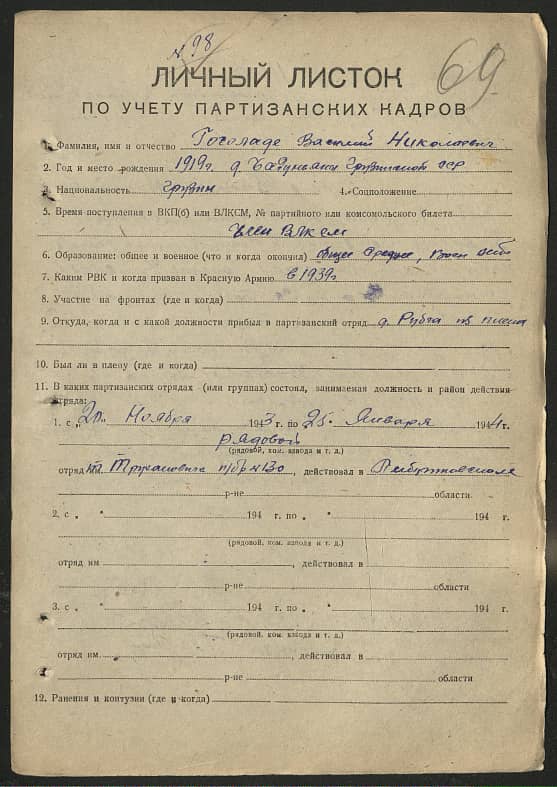 №98
69
ЛИЧНЫЙ ЛИСТОК
ПО УЧЕТУ ПАРТИЗАНСКИХ КАДРОВ
1. Фамилия, имя и отчество Гоголадзе Василий Николаевич
2. Год и место рождения 1919г. д. Грузинской ССР
3. Национальность грузин 4. Соцположение
5. Время поступления в ВКП(б) или ВЛКСМ, № партийного или комсомольского билета
член ВЛКСМ
6. Образование: общее и военное (что и когда окончил) общее среднее,
7. Каким РВК и когда призван в Красную Армию в 1939г
8. Участие на фронтах (где и когда)
9. Откуда, когда и с какой должности прибыл в партизанский отряд д. Рубга из плена
10. Был ли в плену (где и когда)
11. В каких партизанских отрядах (или группах) состоял, занимаемая должность и район действия
отряда:
1. с „20" Ноября 1943 г. по „25" Января 1944 г.
рядовой
(рядовой, ком. взвода и т. д.)
отряд им. п/бр , действовал в
р-не области.
2. с „ " 194 г. по „ " 194 г.
(рядовой, ком. взвода и т. д.)
отряд им , действовал в
р-не области
3. с „ " 194 г. по „ " 194 г.
(рядовой, ком. взвода и т. д.)
отряд им. , действовал в
р-не области
12. Ранения и контузии (где и когда)